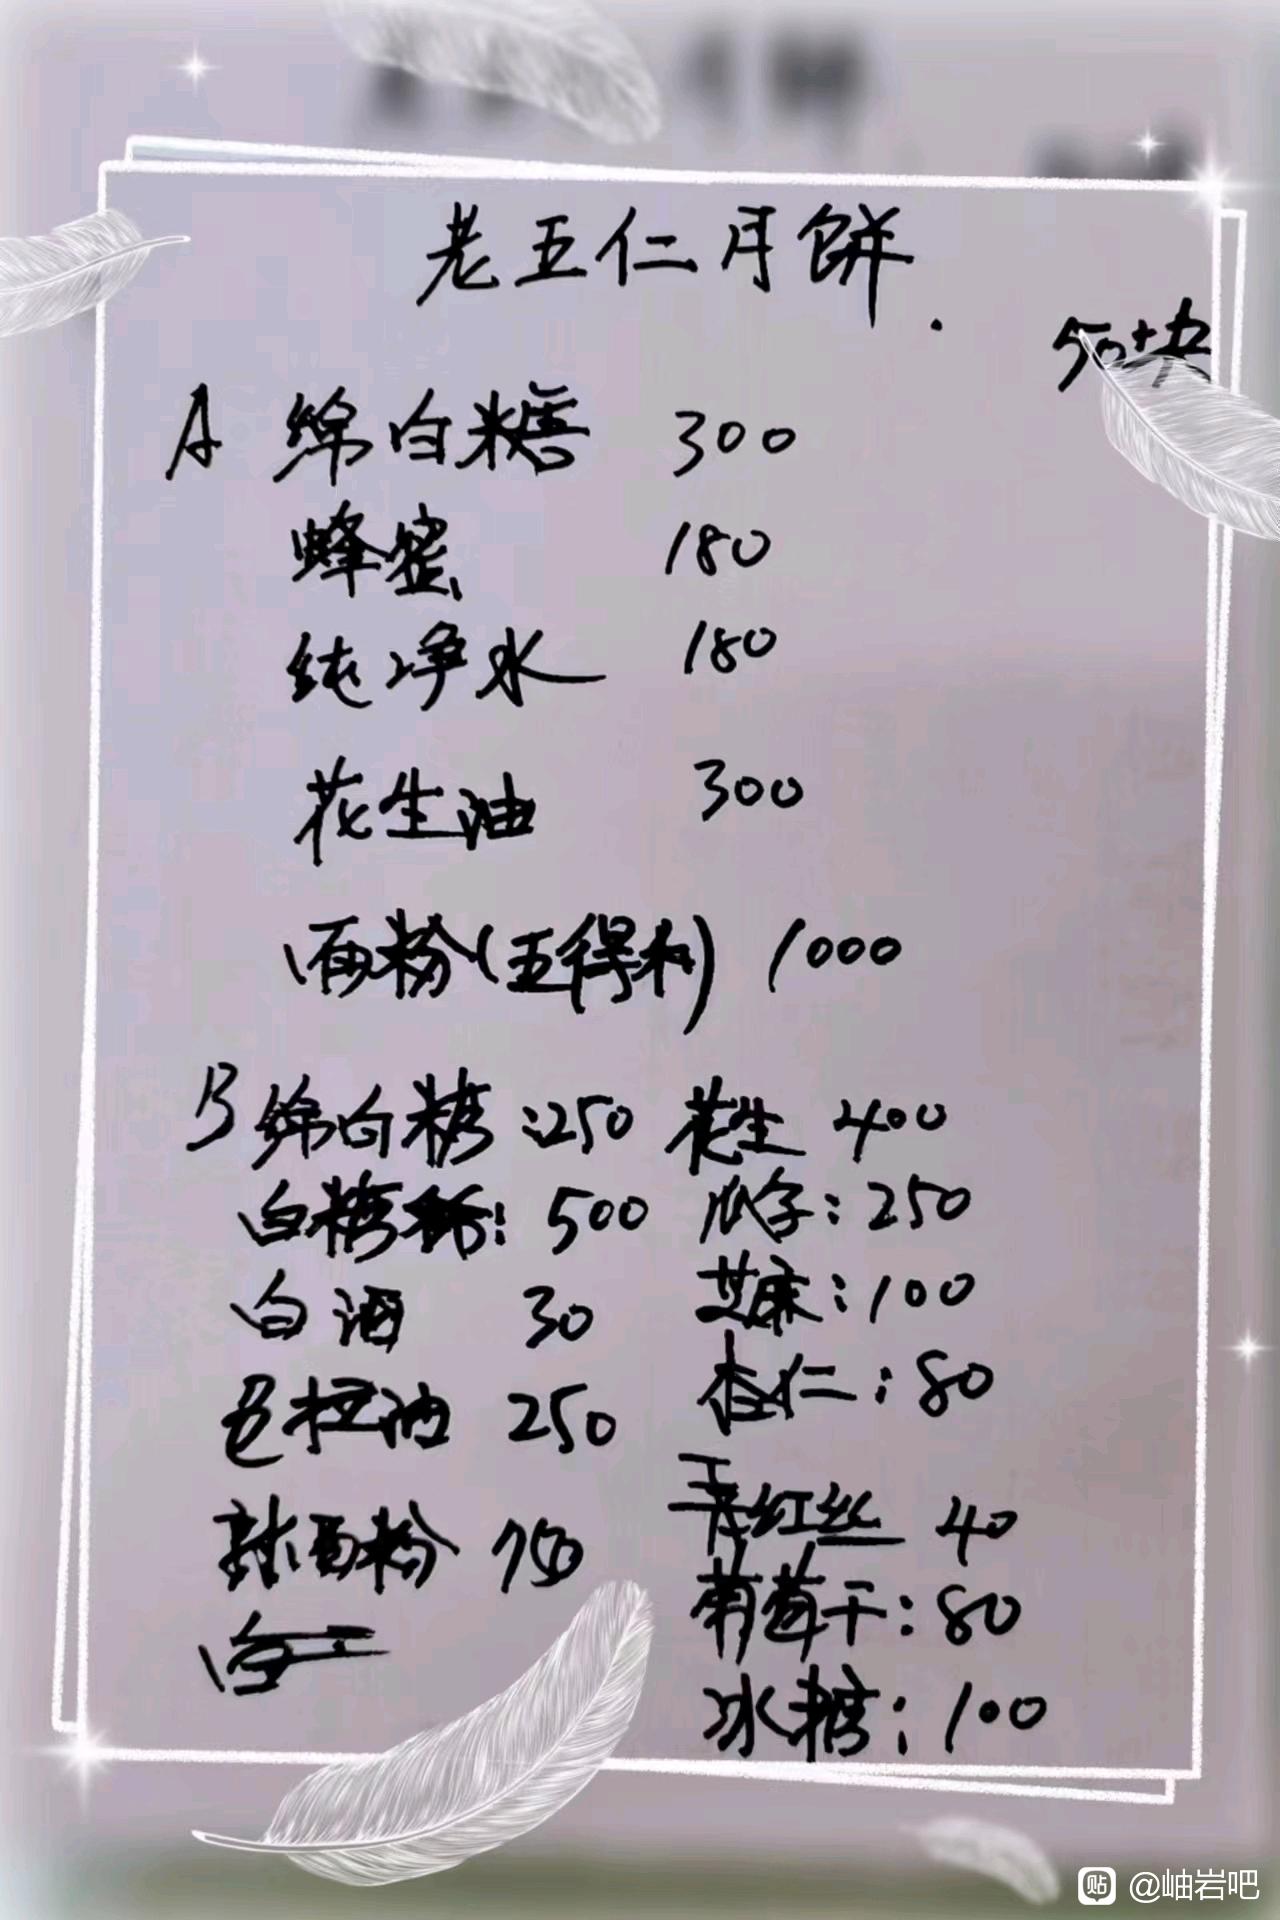 老五仁月饼.
50块
A 绵白糖 300
蜂蜜 180
纯净水 180
花生油 300
面粉(五得利) 1000
B 绵白糖:250
白糖稀:500
白酒 30
色拉油 250
熟面粉 750
花生 400
瓜子:250
芝麻:100
杏仁:80
青红丝 40
葡萄干:80
冰糖:100
贴 @岫岩吧